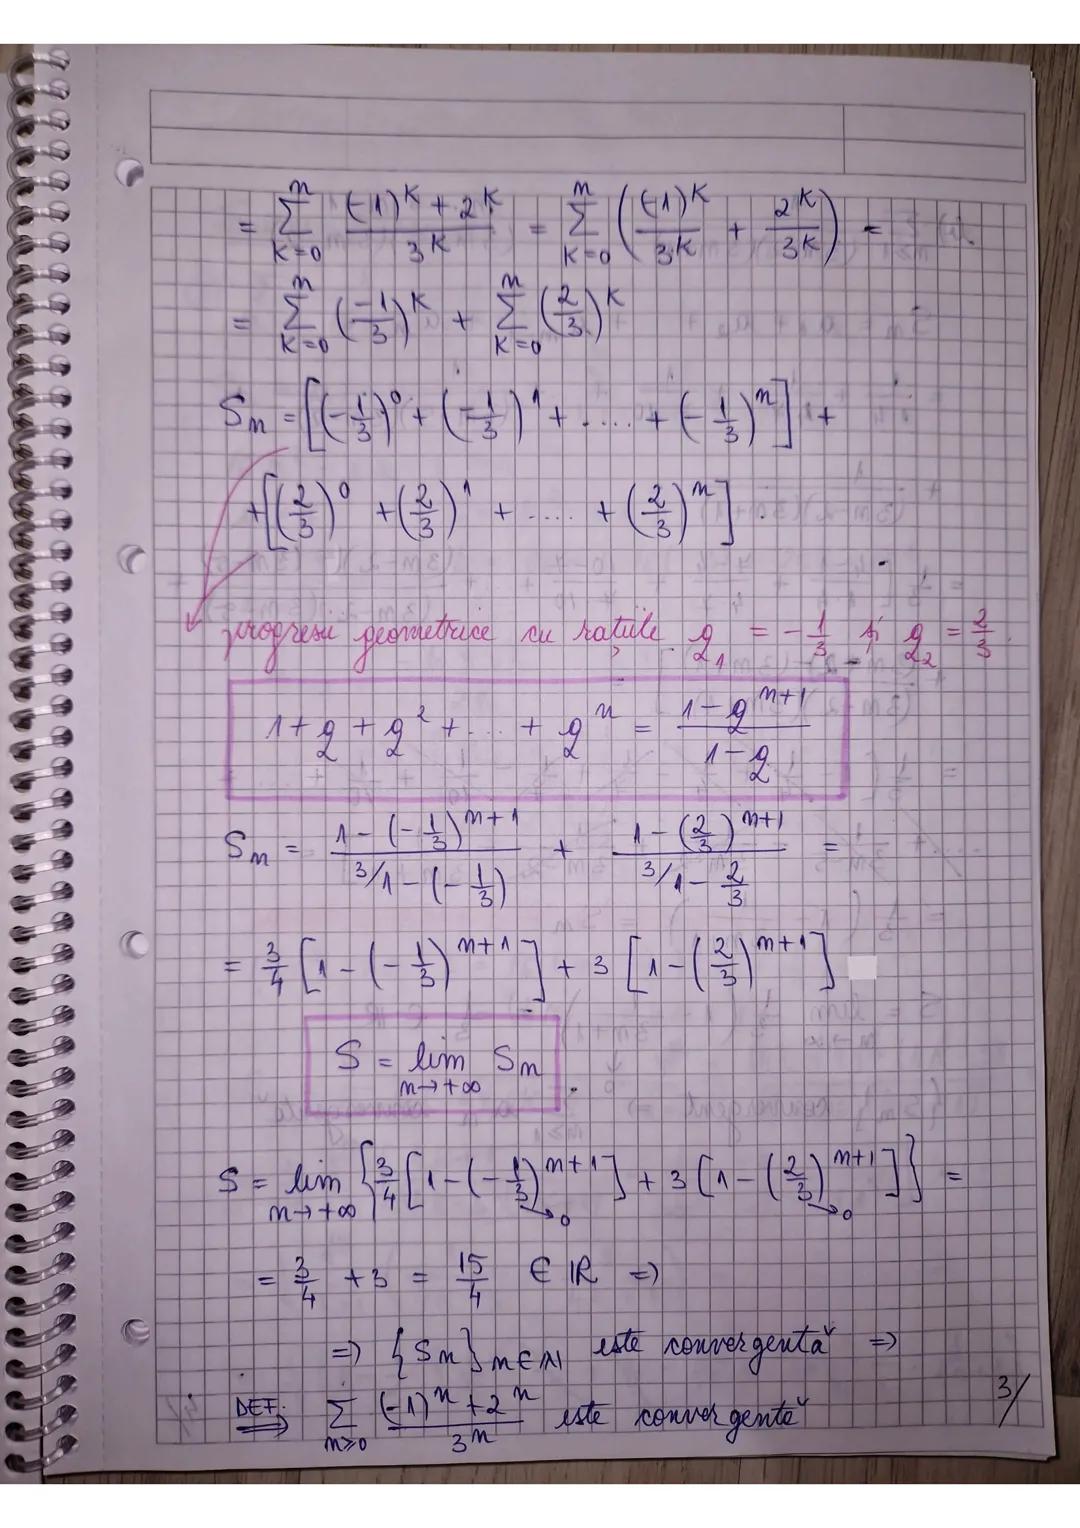 = \sum_{k=0}^{n} \frac{(-1)^k + 2^k}{3^k} = \sum_{k=0}^{n} \left( \frac{(-1)^k}{3^k} + \frac{2^k}{3^k} \right) =
= \sum_{k=0}^{n} \left( \frac{-1}{3} \right)^k + \sum_{k=0}^{n} \left( \frac{2}{3} \right)^k
S_n = \left[ \left( -\frac{1}{3} \right)^0 + \left( -\frac{1}{3} \right)^1 + ..... + \left( -\frac{1}{3} \right)^n \right] +
+ \left[ \left( \frac{2}{3} \right)^0 + \left( \frac{2}{3} \right)^1 + ..... + \left( \frac{2}{3} \right)^n \right].
progresii geometrice cu rațiile q_1 = -\frac{1}{3} și q_2 = \frac{2}{3}.
1 + q + q^2 + .... + q^n = \frac{1 - q^{n+1}}{1 - q}
S_n = \frac{1 - \left( -\frac{1}{3} \right)^{n+1}}{^{3/}1 - \left( -\frac{1}{3} \right)} + \frac{1 - \left( \frac{2}{3} \right)^{n+1}}{^{3/}1 - \frac{2}{3}} =
= \frac{3}{4} \left[ 1 - \left( -\frac{1}{3} \right)^{n+1} \right] + 3 \left[ 1 - \left( \frac{2}{3} \right)^{n+1} \right]
S = \lim_{n \to +\infty} S_n
S = \lim_{n \to +\infty} \left\{ \frac{3}{4} \left[ 1 - \left( -\frac{1}{3} \right)^{n+1} \right] + 3 \left[ 1 - \left( \frac{2}{3} \right)^{n+1} \right] \right\} =
→0 →0
= \frac{3}{4} + 3 = \frac{15}{4} ∈ ℝ ⇒
⇒ {S_n}_{n∈ℕ} este convergentă ⇒
DEF. ⟹ \sum_{n≥0} \frac{(-1)^n + 2^n}{3^n} este convergentă
3/